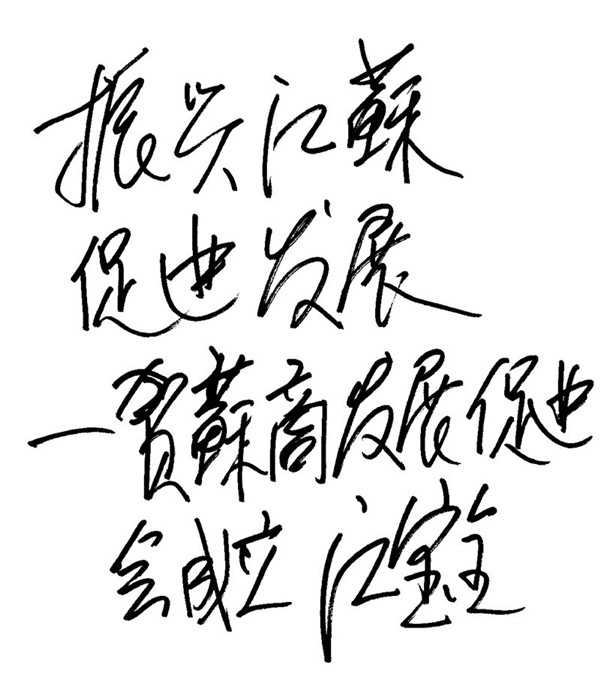 振兴江蘇
促进发展
一贺蘇商发展促进
会成立 江宝全